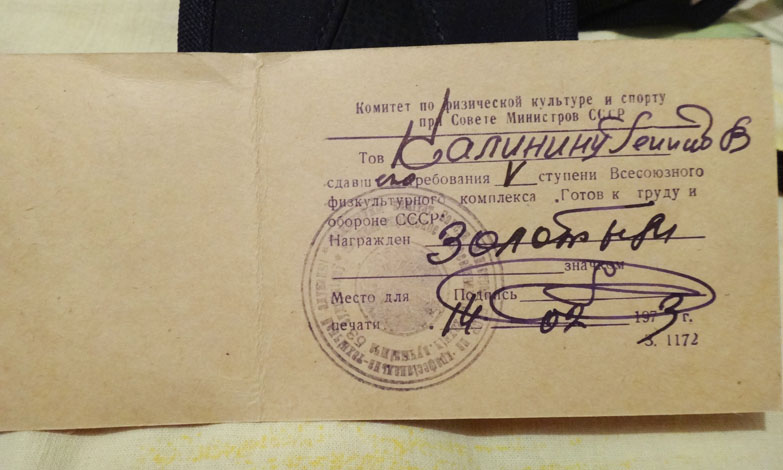 Комитет по физической культуре и спорту
при Совете Министров СССР
Тов Калинину
сдавшего требования V ступени Всесоюзного
физкультурного комплекса „Готов к труду и
обороне СССР"
Награжден Золотым
значком
Место для Подпись
печати 14 02 1973 г.
З. 1172